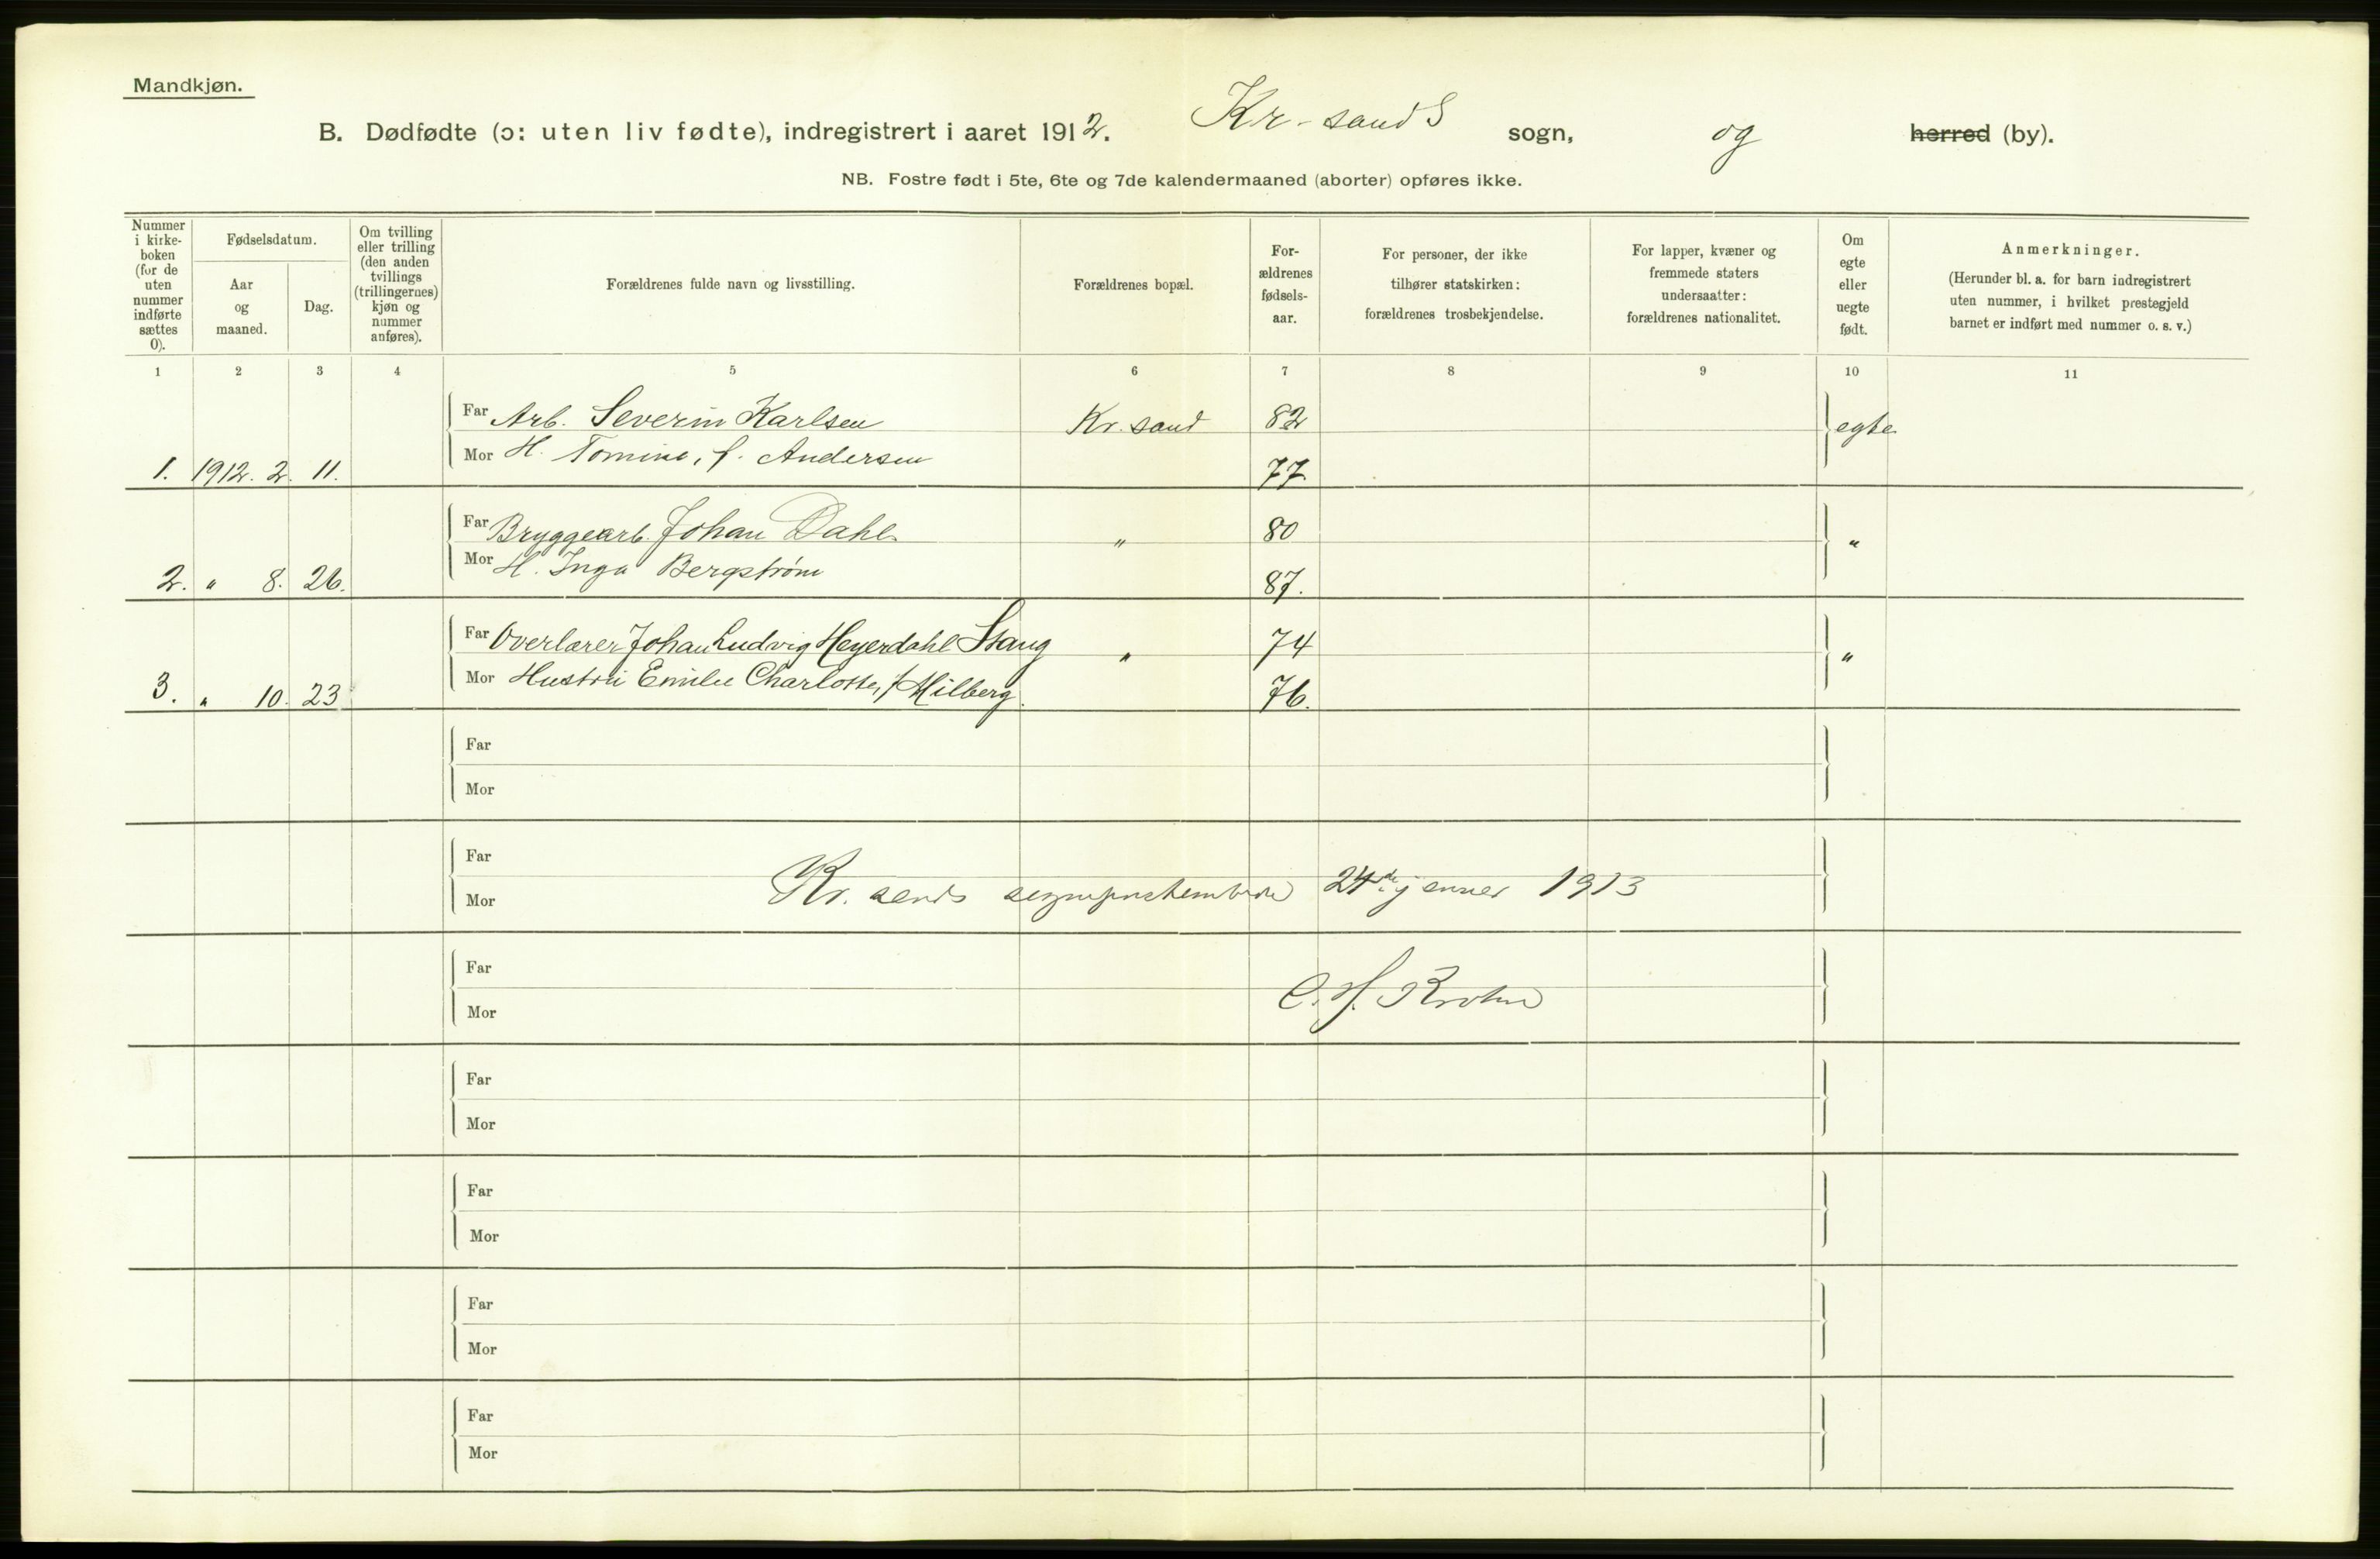 Mandkjøn.
B. Dødfødte (ɔ: uten liv fødte), indregistrert i aaret 1912. Kr-sand S sogn, og herred (by).
NB. Fostre født i 5te, 6te og 7de kalendermaaned (aborter) opføres ikke.
Nummer
i kirke-
boken
(for de
uten
nummer
indførte
sættes
0).
Fødselsdatum.
Aar
og
maaned.
Dag.
Om tvilling
eller trilling
(den anden
tvillings
(trillingernes)
kjøn og
nummer
anføres).
Forældrenes fulde navn og livsstilling.
Forældrenes bopæl.
For-
ældrenes
fødsels-
aar.
For personer, der ikke
tilhører statskirken:
forældrenes trosbekjendelse.
For lapper, kvæner og
fremmede staters
undersaatter:
forældrenes nationalitet.
Om
egte
eller
uegte
født.
Anmerkninger.
(Herunder bl. a. for barn indregistrert
uten nummer, i hvilket prestegjeld
barnet er indført med nummer o. s. v.)
1 2 3 4 5 6 7 8 9 10 11
Far Arb. Severin Karlsen Kr. sand 82 egte
1. 1912. 2. 11. Mor H. Tomine, f. Andersen 77
Far Bryggearb. Johan Dahl " 80 "
2. " 8. 26. Mor H. Inga Bergstrøm 87.
Far Overlærer Johan Ludvig Heyerdahl Stang " 74 "
3. " 10. 23 Mor Hustru Emilie Charlotte, f. Milberg. 76.
Far
Mor
Far
Mor Kr. sands 24de januar 1913
Far
Mor C. H. Krohn
Far
Mor
Far
Mor
Far
Mor
Far
Mor